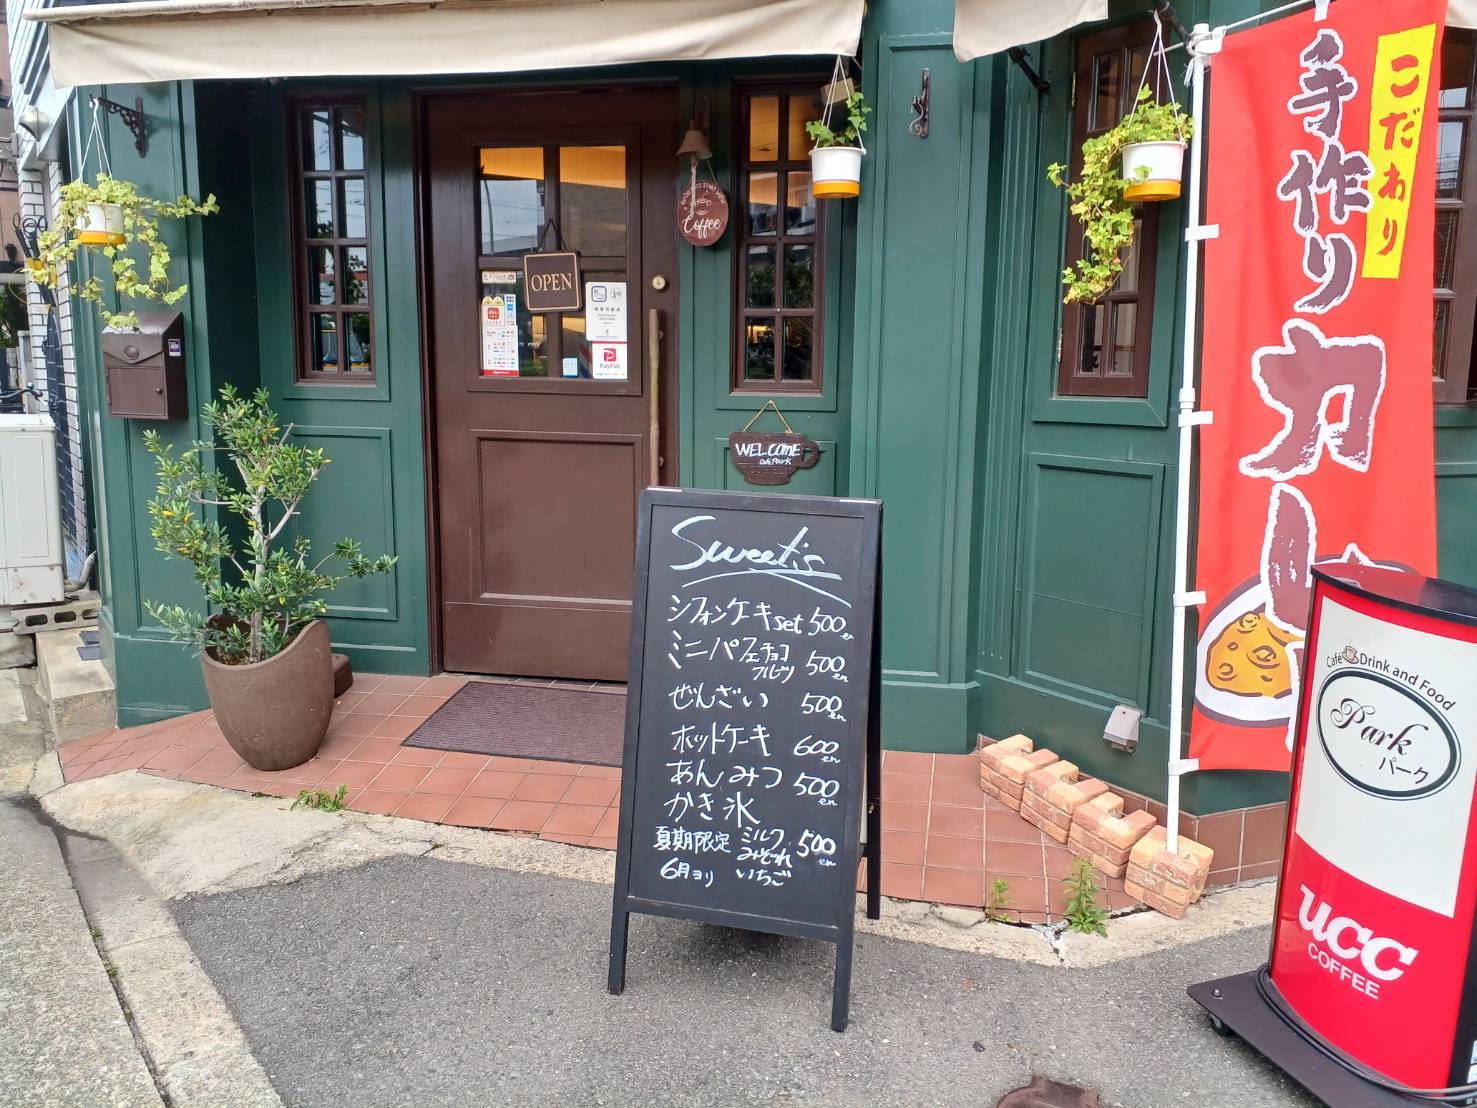 OPEN
Coffee
PayPay
WELCOME
Cafe Park
Sweet's
シフォンケーキset 500en
ミニパフェチョコ
フルーツ 500en
ぜんざい 500en
ホットケーキ 600en
あんみつ 500en
かき氷
夏期限定 ミルク 500en
みぞれ
6月ヨリ いちご
こだわり
手作り
カレー
Café Drink and Food
Park
パーク
UCC
COFFEE